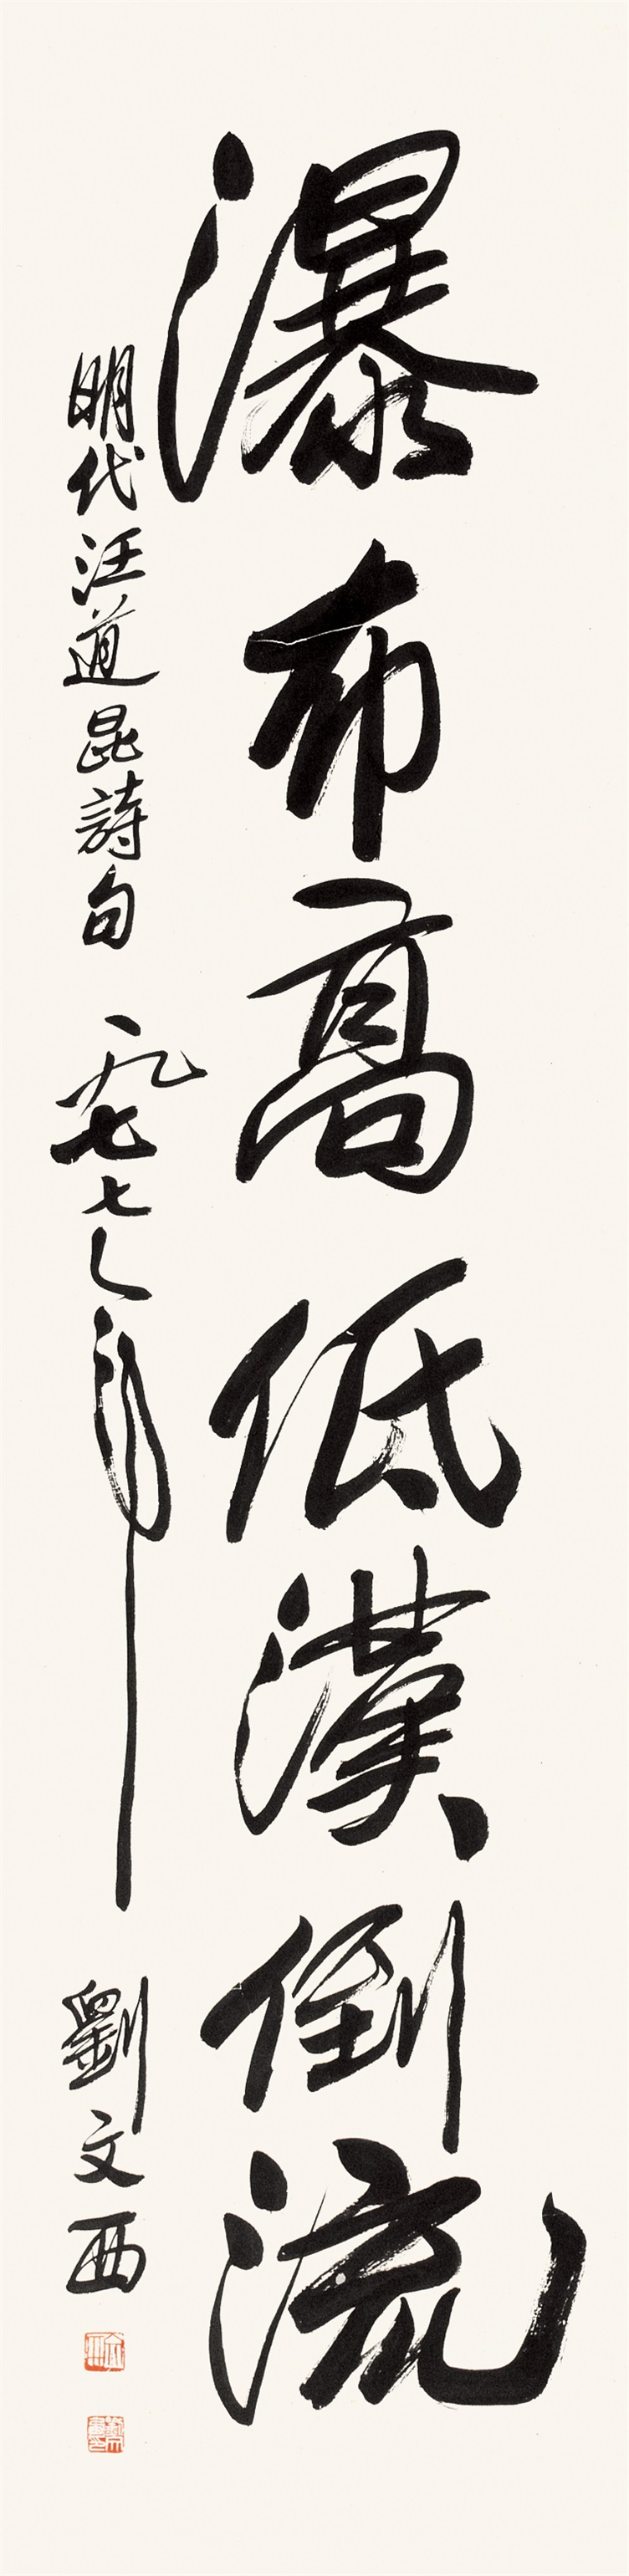 瀑布高低漢倒流
明代汪道昆詩句 一九七七年 劉文西